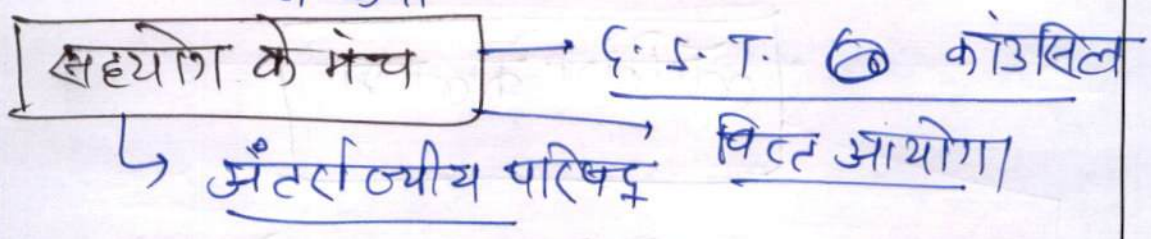 सहयोग के मंच → G.S.T. काउंसिल
→ वित्त आयोग
↳ अंतर्राज्यीय परिषद्